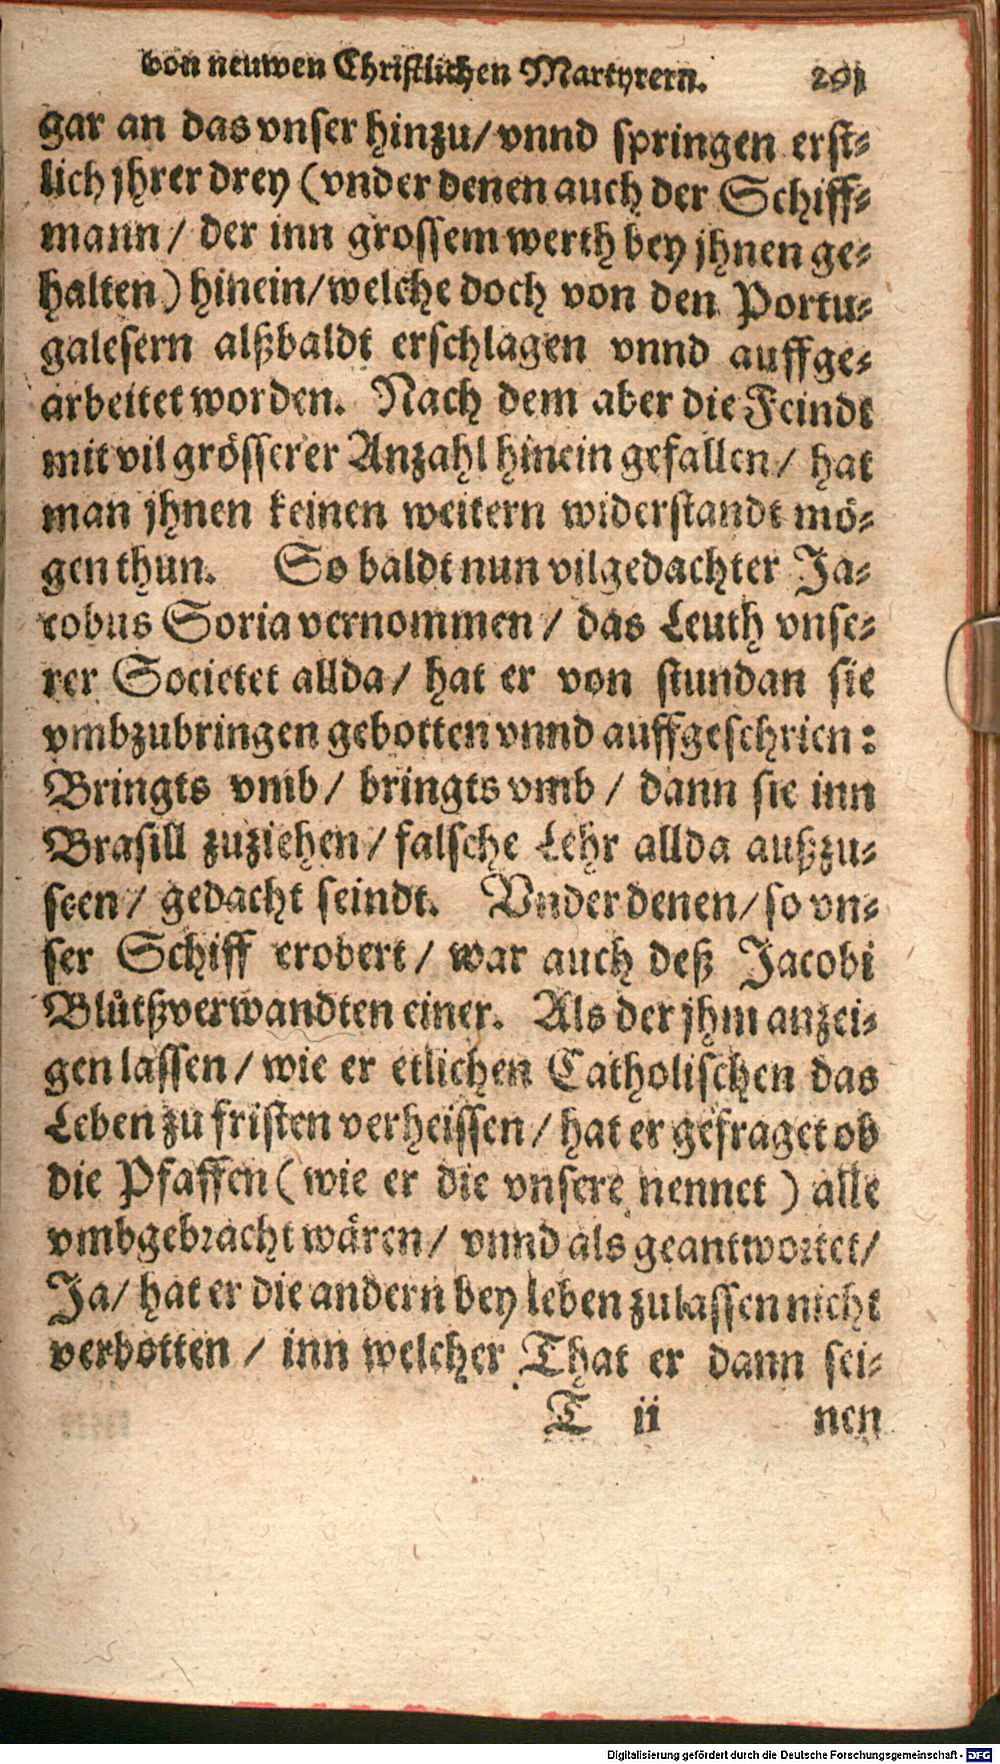 von neuwen Christlichen Martyrern. 291
gar an das vnser hinzu/ vnnd springen erst-
lich jhrer drey (vnder denen auch der Schiff-
mann/ der inn grossem werth bey jhnen ge-
halten) hinein/ welche doch von den Portu-
galesern alßbaldt erschlagen vnnd auffge-
arbeitet worden. Nach dem aber die Feindt
mit vil grösserer Anzahl hinein gefallen/ hat
man jhnen keinen weitern widerstandt mö-
gen thun. So baldt nun vilgedachter Ja-
cobus Soria vernommen/ das Leuth vnse-
rer Societet allda/ hat er von stundan sie
vmbzubringen gebotten vnnd auffgeschrien:
Bringts vmb/ bringts vmb/ dann sie inn
Brasill zuziehen/ falsche Lehr allda außzu-
seen/ gedacht seindt. Vnder denen/ so vn-
ser Schiff erobert/ war auch deß Jacobi
Blůtßverwandten einer. Als der jhm anzei-
gen lassen/ wie er etlichen Catholischen das
Leben zu fristen verheissen/ hat er gefraget ob
die Pfaffen (wie er die vnsere nennet) alle
vmbgebracht wären/ vnnd als geantwortet/
Ja/ hat er die andern bey leben zulassen nicht
verbotten/ inn welcher That er dann sei-
T ii nen
Digitalisierung gefördert durch die Deutsche Forschungsgemeinschaft - DFG